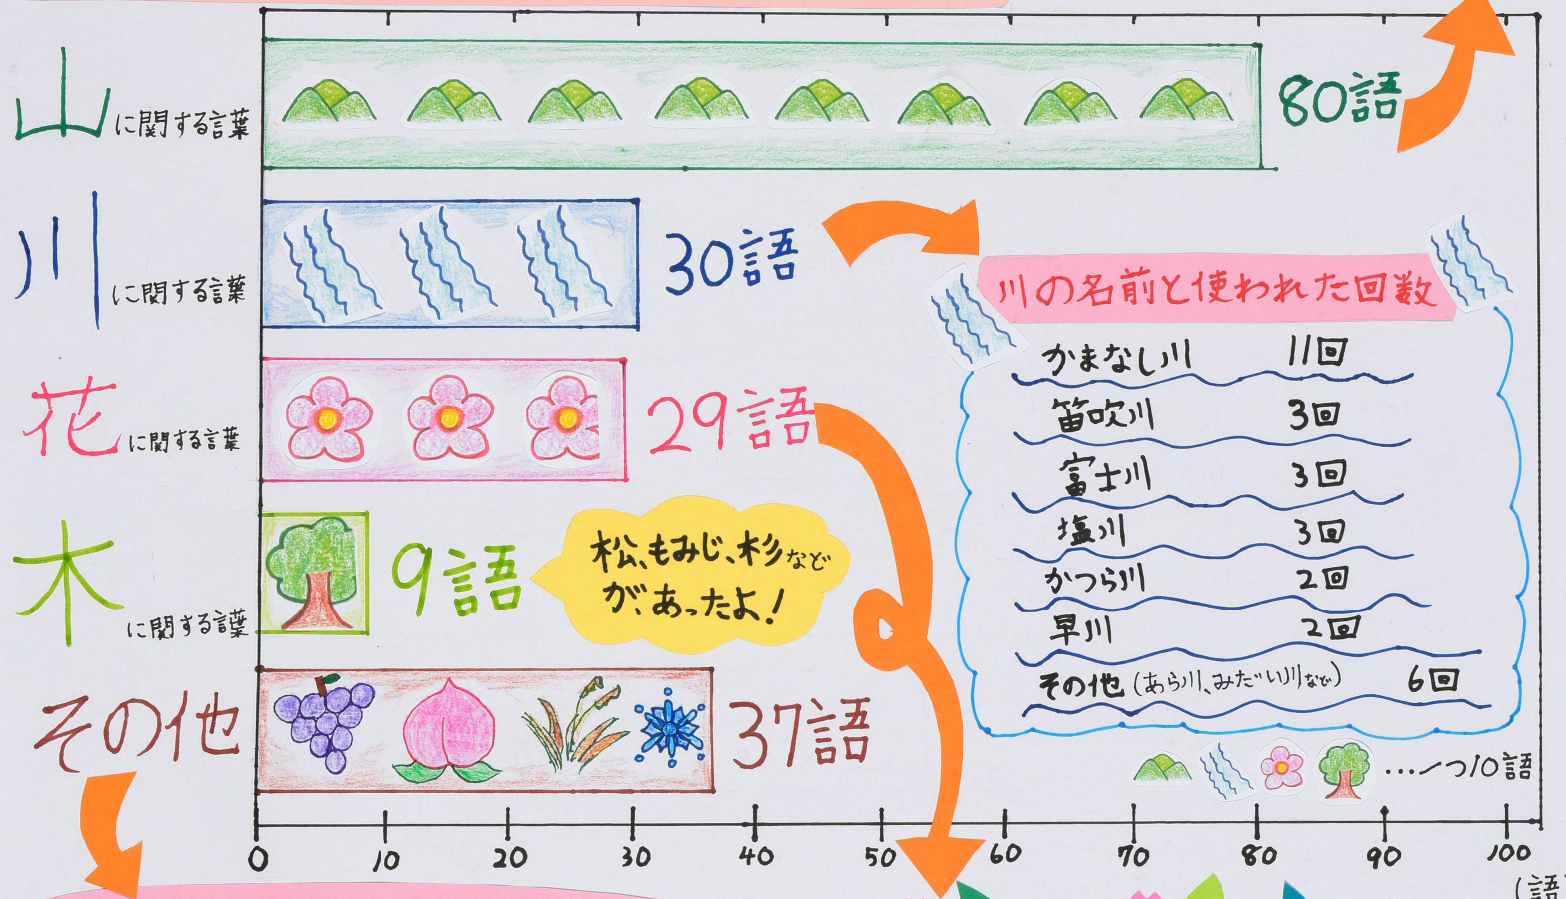 山に関する言葉
80語
川に関する言葉
30語
花に関する言葉
29語
木に関する言葉
9語
松、もみじ、杉など
が、あったよ!
その他
37語
川の名前と使われた回数
かまなし川 11回
笛吹川 3回
富士川 3回
塩川 3回
かつら川 2回
早川 2回
その他(あら川、みだい川など) 6回
…一つ10語
0 10 20 30 40 50 60 70 80 90 100
(語